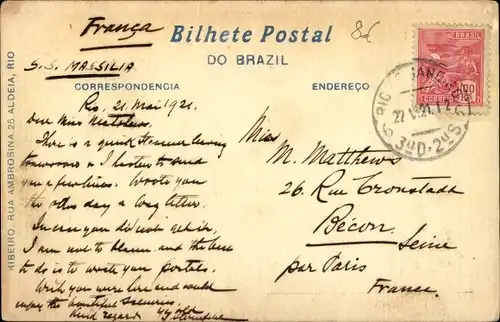 França
Bilhete Postal
DO BRAZIL
8d
S.S. MASSILIA
CORRESPONDENCIA
ENDEREÇO
Rio, 21. Mai 1921.
Dear Miss Matthews,
There is a quick steamer leaving
tomorrow & I hasten to send
you a few lines. Wrote you
the other day a long letter.
In case you did not get it,
I am not to blame and the best
to do is to write you postals.
Wish you were here and could
enjoy the beautiful sceneries.
Kind regards
Miss
M. Matthews
26. Rue Cronstadt
Bécon.
Seine
par Paris
France.
BRAZIL
100
RIO DE JANEIRO
22 V. 21
3ªD-2ªS
RIBEIRO. RUA AMBROSINA, 25. ALDEIA, RIO